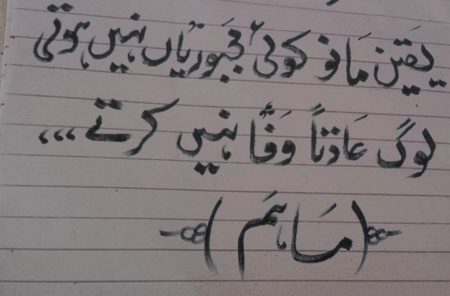 یقین مانو کوئی مجبوریاں نہیں ہوتی
لوگ عادتاً وفا نہیں کرتے...
(ماہم)